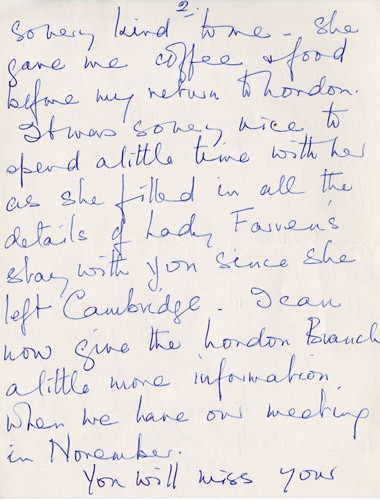 2.
so very kind to me - she
gave me coffee & food
before my return to London.
It was so very nice to
spend a little time with her
as she filled in all the
details of Lady Farren's
stay with you since she
left Cambridge. I can
now give the London Branch
a little more information,
when we have our meeting
in November.
You will miss your